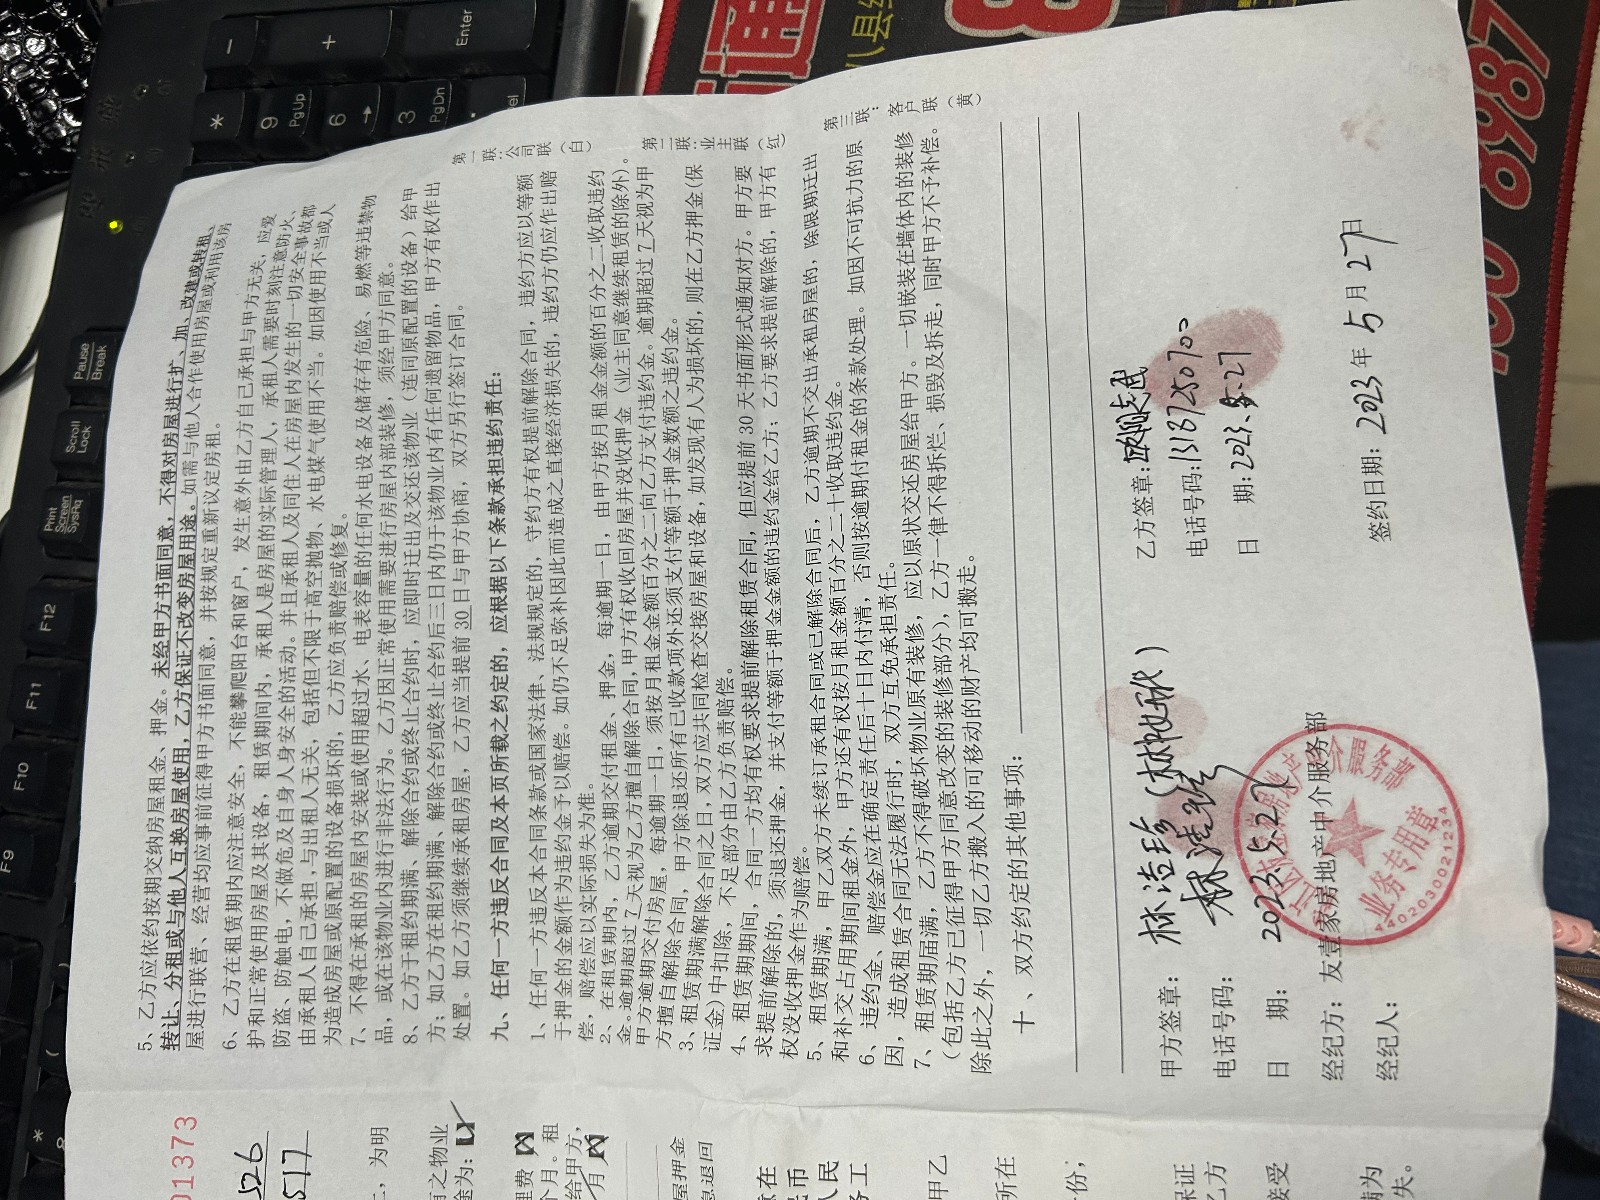 5、乙方应依约按期交纳房屋租金、押金。未经甲方书面同意，不得对房屋进行扩、加、改建或转租、
转让、分租或与他人互换房屋使用，乙方保证不改变房屋用途。如需与他人合作使用房屋或利用该房
屋进行联营、经营均应事前征得甲方书面同意，并按规定重新议定房租。
6、乙方在租赁期内应注意安全，不能攀爬阳台和窗户，发生意外由乙方自己承担与甲方无关，应爱
护和正常使用房屋及其设备，租赁期间内，承租人是房屋的实际管理人，承租人需要时刻注意防火、
防盗、防触电，不做危及自身人身安全的活动。并且承租人及同住人在房屋内发生的一切安全事故都
由承租人自己承担，与出租人无关，包括但不限于高空抛物、水电煤气使用不当。如因使用不当或人
为造成房屋或原配置的设备损坏的，乙方应负责赔偿或修复。
7、不得在承租的房屋内安装或使用超过水、电表容量的任何水电设备及储存有危险、易燃等违禁物
品，或在该物业内进行非法行为。乙方因正常使用需要进行房屋内部装修，须经甲方同意。
8、乙方于租约期满、解除合约或终止合约时，应即时迁出及交还该物业（连同原配置的设备）给甲
方；如乙方在租约期满、解除合约或终止合约后三日内仍于该物业内有任何遗留物品，甲方有权作出
处置。如乙方须继续承租房屋，乙方应当提前 30 日与甲方协商，双方另行签订合同。
九、任何一方违反合同及本页所载之约定的，应根据以下条款承担违约责任：
1、任何一方违反本合同条款或国家法律、法规规定的，守约方有权提前解除合同，违约方应以等额
于押金的金额作为违约金予以赔偿。如仍不足弥补因此而造成之直接经济损失的，违约方仍应作出赔
偿，赔偿应以实际损失为准。
2、在租赁期内，乙方逾期交付租金、押金，每逾期一日，由甲方按月租金金额的百分之二收取违约
金；逾期超过 7 天视为乙方擅自解除合同，甲方有权收回房屋并没收押金（业主同意继续租赁的除外）。
甲方逾期交付房屋，每逾期一日，须按月租金金额百分之二向乙方支付违约金。逾期超过 7 天视为甲
方擅自解除合同，甲方除退还所有已收款项外还须支付等额于押金数额之违约金。
3、租赁期满解除合同之日，双方应共同检查交接房屋和设备，如发现有人为损坏的，则在乙方押金（保
证金）中扣除，不足部分由乙方负责赔偿。
4、租赁期期间，合同一方均有权要求提前解除租赁合同，但应提前 30 天书面形式通知对方。甲方要
求提前解除的，须退还押金，并支付等额于押金金额的违约金给乙方；乙方要求提前解除的，甲方有
权没收押金作为赔偿。
5、租赁期满，甲乙双方未续订承租合同或已解除合同后，乙方逾期不交出承租房屋的，除限期迁出
和补交占用期间租金外，甲方还有权按月租金额百分之二十收取违约金。
6、违约金、赔偿金应在确定责任后十日内付清，否则按逾期付租金的条款处理。如因不可抗力的原
因，造成租赁合同无法履行时，双方互免承担责任。
7、租赁期届满，乙方不得破坏物业原有装修，应以原状交还房屋给甲方。一切嵌装在墙体内的装修
（包括乙方已征得甲方同意改变的装修部分），乙方一律不得拆烂、损毁及拆走，同时甲方不予补偿。
除此之外，一切乙方搬入的可移动的财产均可搬走。
十、双方约定的其他事项：
第一联：公司联（白）
第二联：业主联（红）
第三联：客户联（黄）
甲方签章：林浩铃（林
电话号码：
日 期：2023.5.27
经纪方：友壹家房地产中介服务部
经纪人：
乙方签章：
电话号码：13137250700
日 期：2023.5.27
签约日期：2023 年 5 月 27 日
业务专用章
4402030021234
01373
526
517
，为明
有之物业
途为：
理费
个月。租
给甲方，
月
屋押金
息退回
意在
民币
人民
务工
甲乙
所在
份，
保证
乙方
接受
满为
失。
Print Screen SysRq
Scroll Lock
Pause Break
F9
F10
F11
F12
*
8
(
-
+
Enter
*
9 PgUp
6 →
3 PgDn
通
八县
8
8987